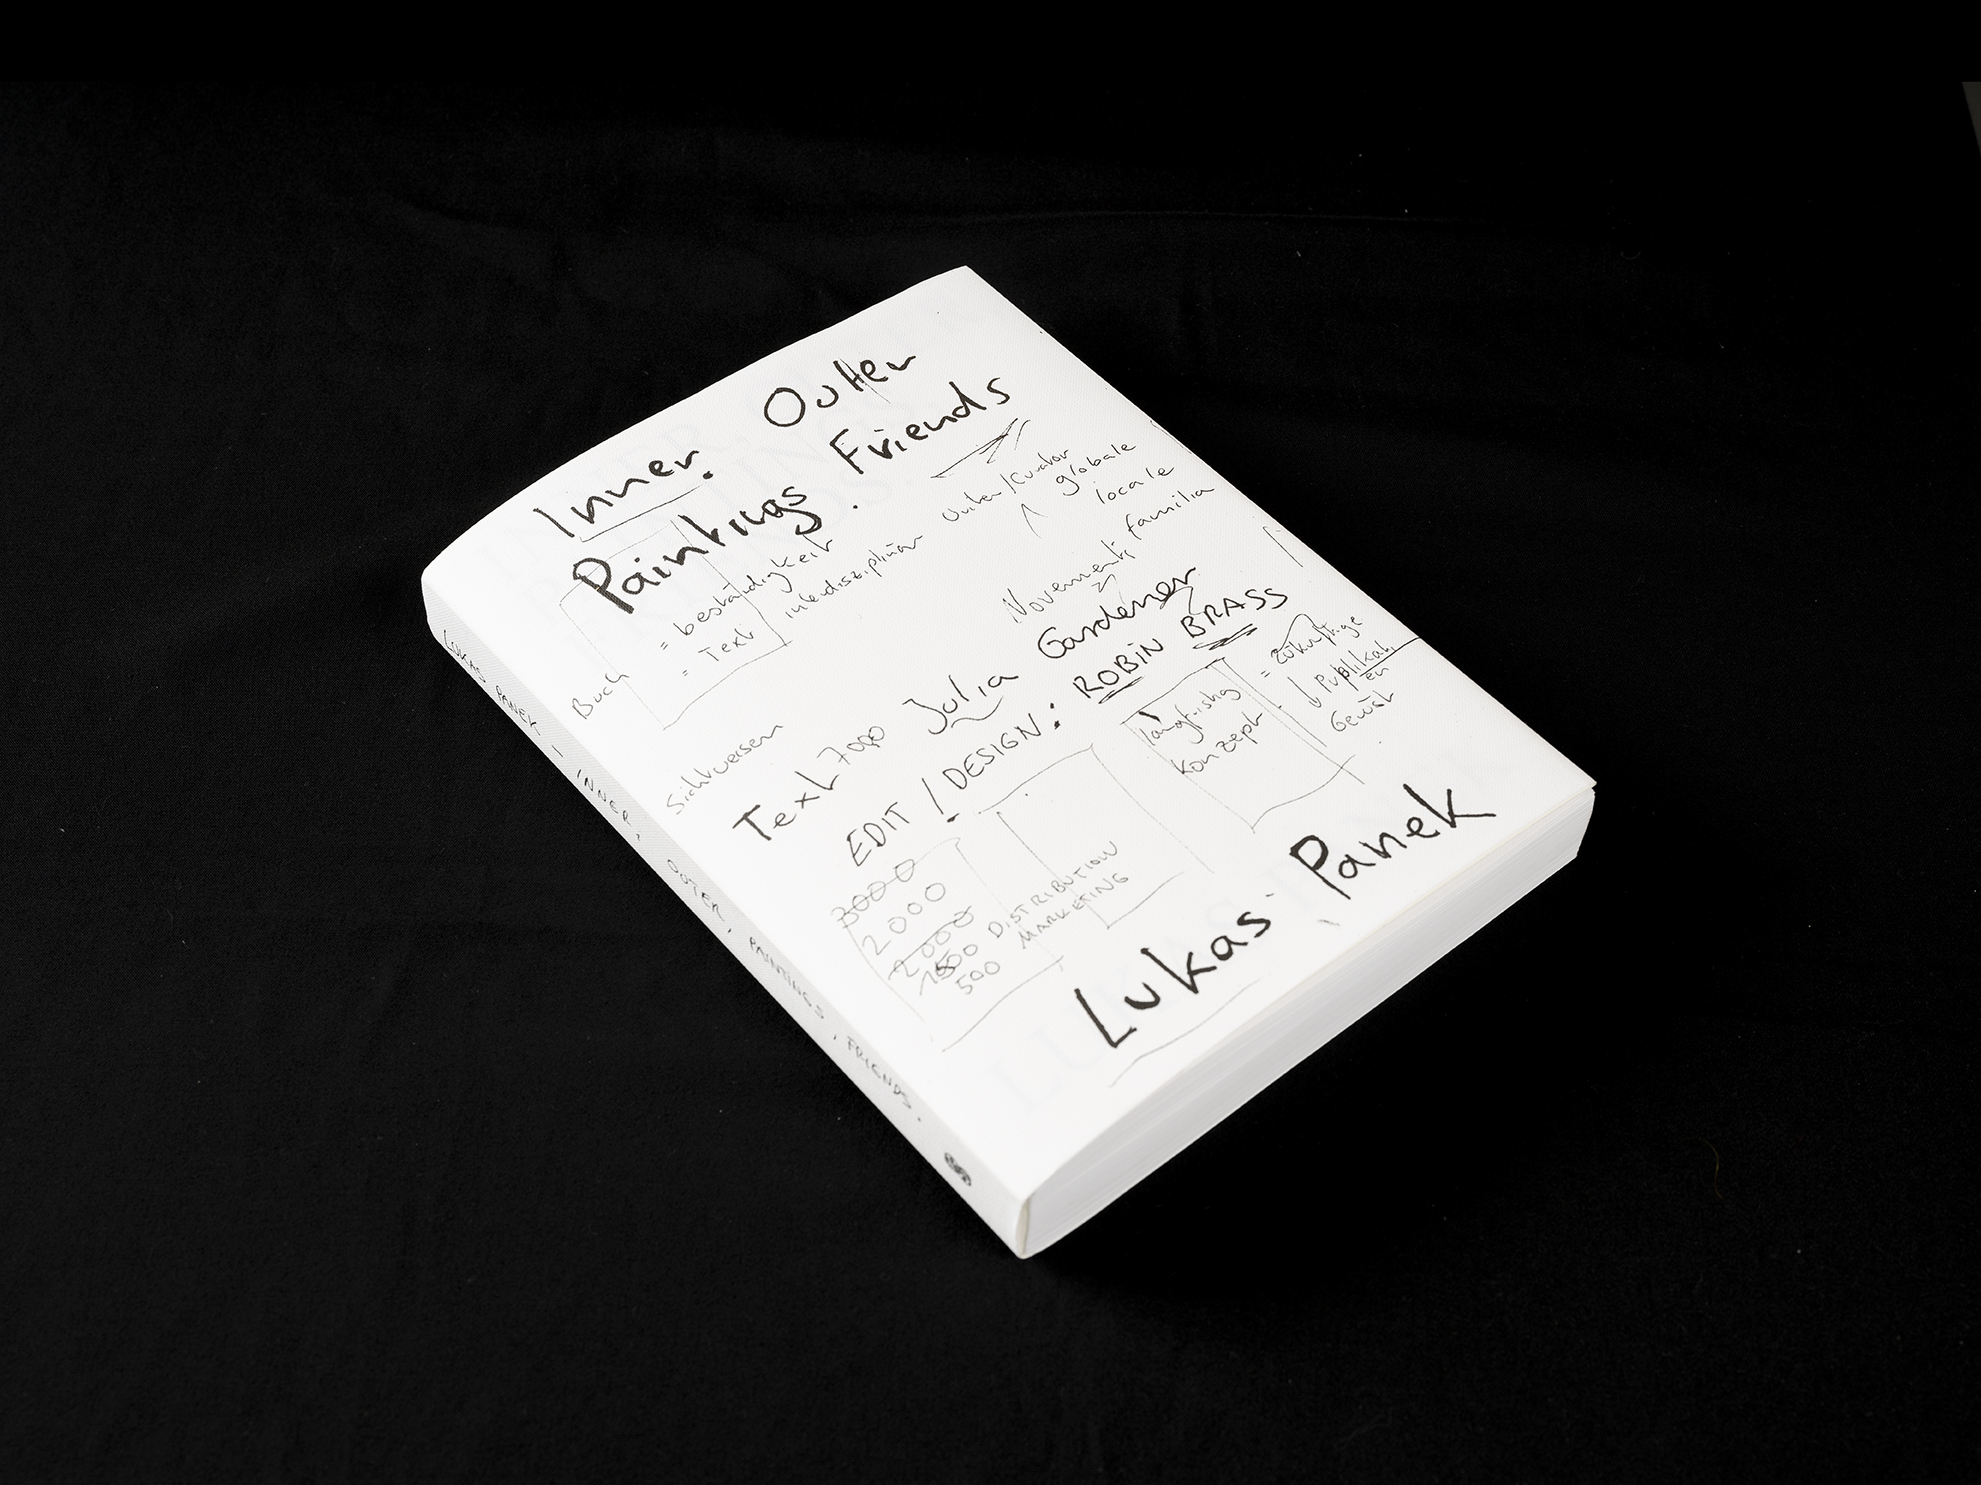 Inner. Outter
Paintings. Friends
= beständigkeit
= Text
interdisziplinär
/Curator
globale
locale
familia
Movements
Buch
Sichtweisen
Text 7000 Julia Gardener
EDIT / DESIGN: ROBIN BRASS
langfristig
Konzept
= zukünftige
Publikati
en
3000
2000
2000
1500 DISTRIBUTION
500 MARKETING
Lukas Panek
LUKAS PANEK – INNER. OUTER. PAINTINGS, FRIENDS.